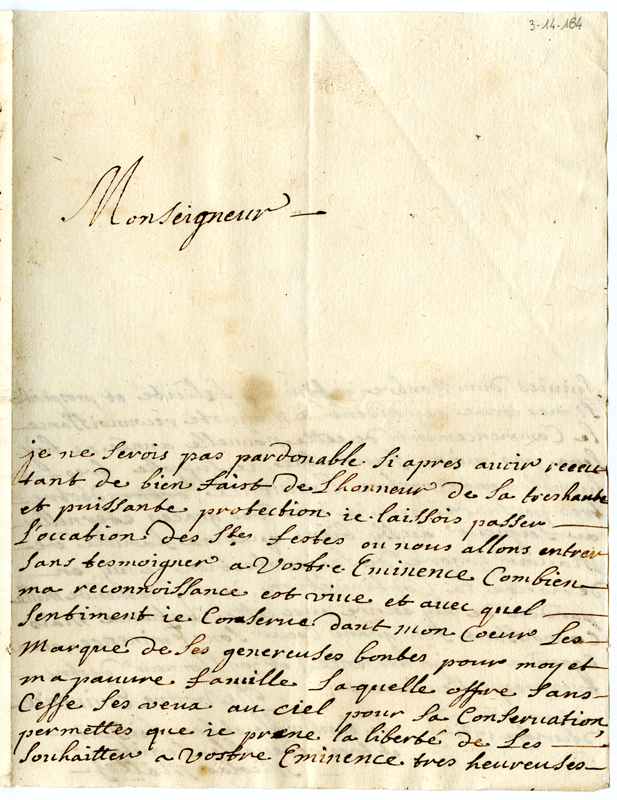 3-14-184
Monseigneur
je ne serois pas pardonable si apres auoir receu
tant de bien faist de Lhonneur de sa treshaute
et puissante protection ie laissois passer
l'occation des Stes festes ou nous allons entrer
sans tesmoigner a Vostre Eminence Combien
ma reconnoissance est viue et auec quel
sentiment ie Conserue dant mon Coeur Les
Marque de ses genereuses bontes pour moy et
ma pauure famille laquelle offre sans
Cesse ses veux au ciel pour sa Conseruation,
permettes que ie prene la liberté de Les
souhaitter a Vostre Eminence tres heureuses